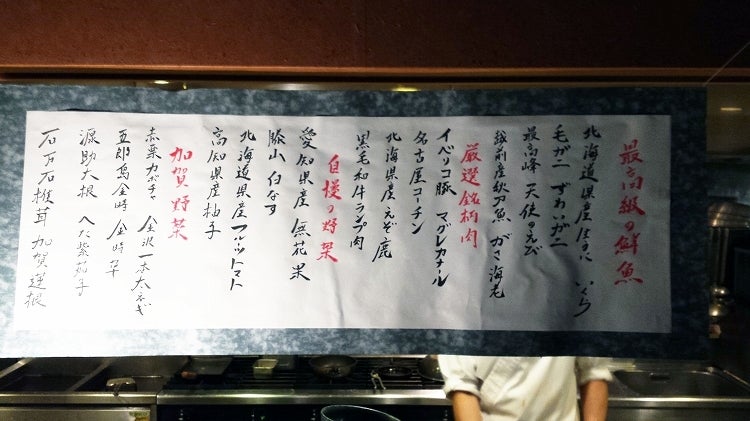 最高級の鮮魚
北海道県産 うに いくら
毛ガニ ずわいガニ
最高峰 天使のえび
越前産秋刀魚 がさ海老
厳選銘柄肉
イベリコ豚 マグレカナール
名古屋コーチン
北海県産えぞ鹿
黒毛和牛ランプ肉
自慢の野菜
愛知県産 無花果
豚山 白なす
北海道県産フルーツトマト
高知県産柚子
加賀野菜
赤栗カボチャ 金沢一本太ネギ
五郎島金時 金時草
源助大根 へた紫茄子
石万石椎茸 加賀蓮根